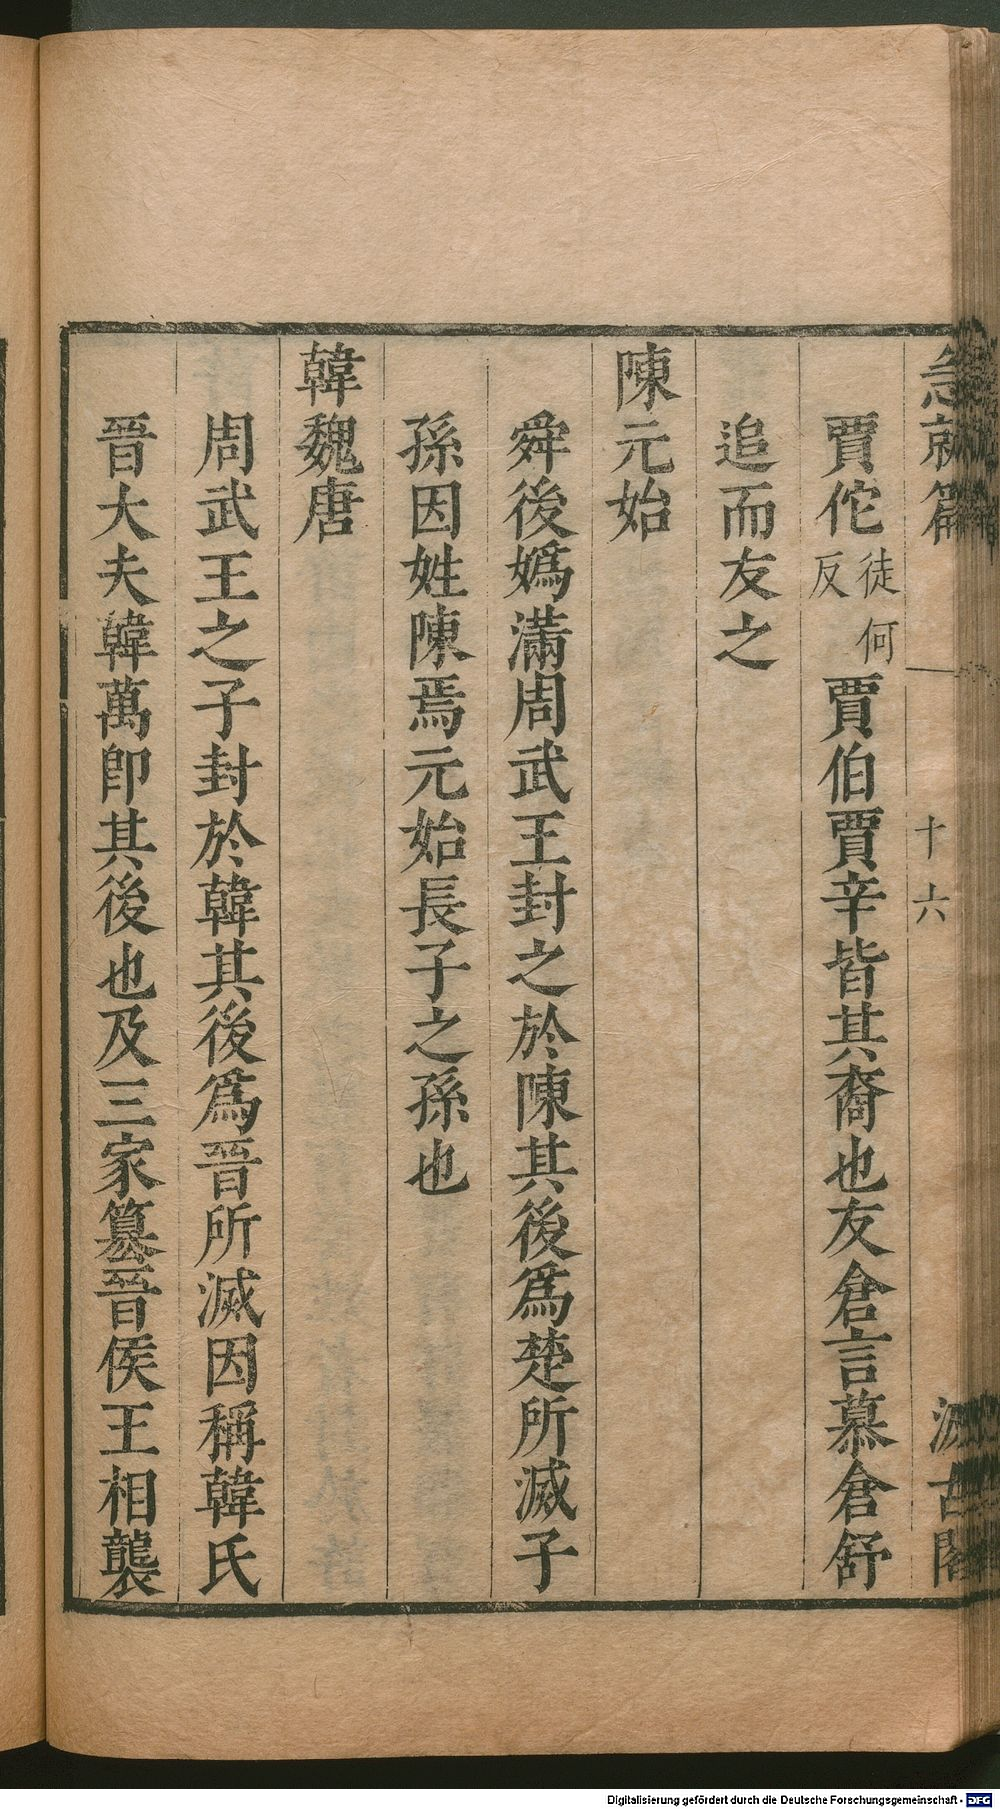 急就篇 十六 汲古閣
賈佗徒何反賈伯賈辛皆其裔也友倉言慕倉舒
追而友之
陳元始
舜後嬀滿周武王封之於陳其後爲楚所滅子
孫因姓陳焉元始長子之孫也
韓魏唐
周武王之子封於韓其後爲晉所滅因稱韓氏
晉大夫韓萬卽其後也及三家篡晉侯王相襲
Digitalisierung gefördert durch die Deutsche Forschungsgemeinschaft - DFG